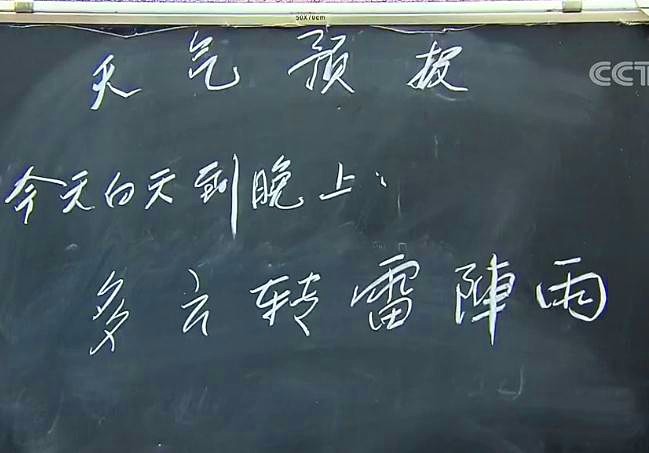 50X70cm
CCT
天气预报
今天白天到晚上:
多云转雷陣雨